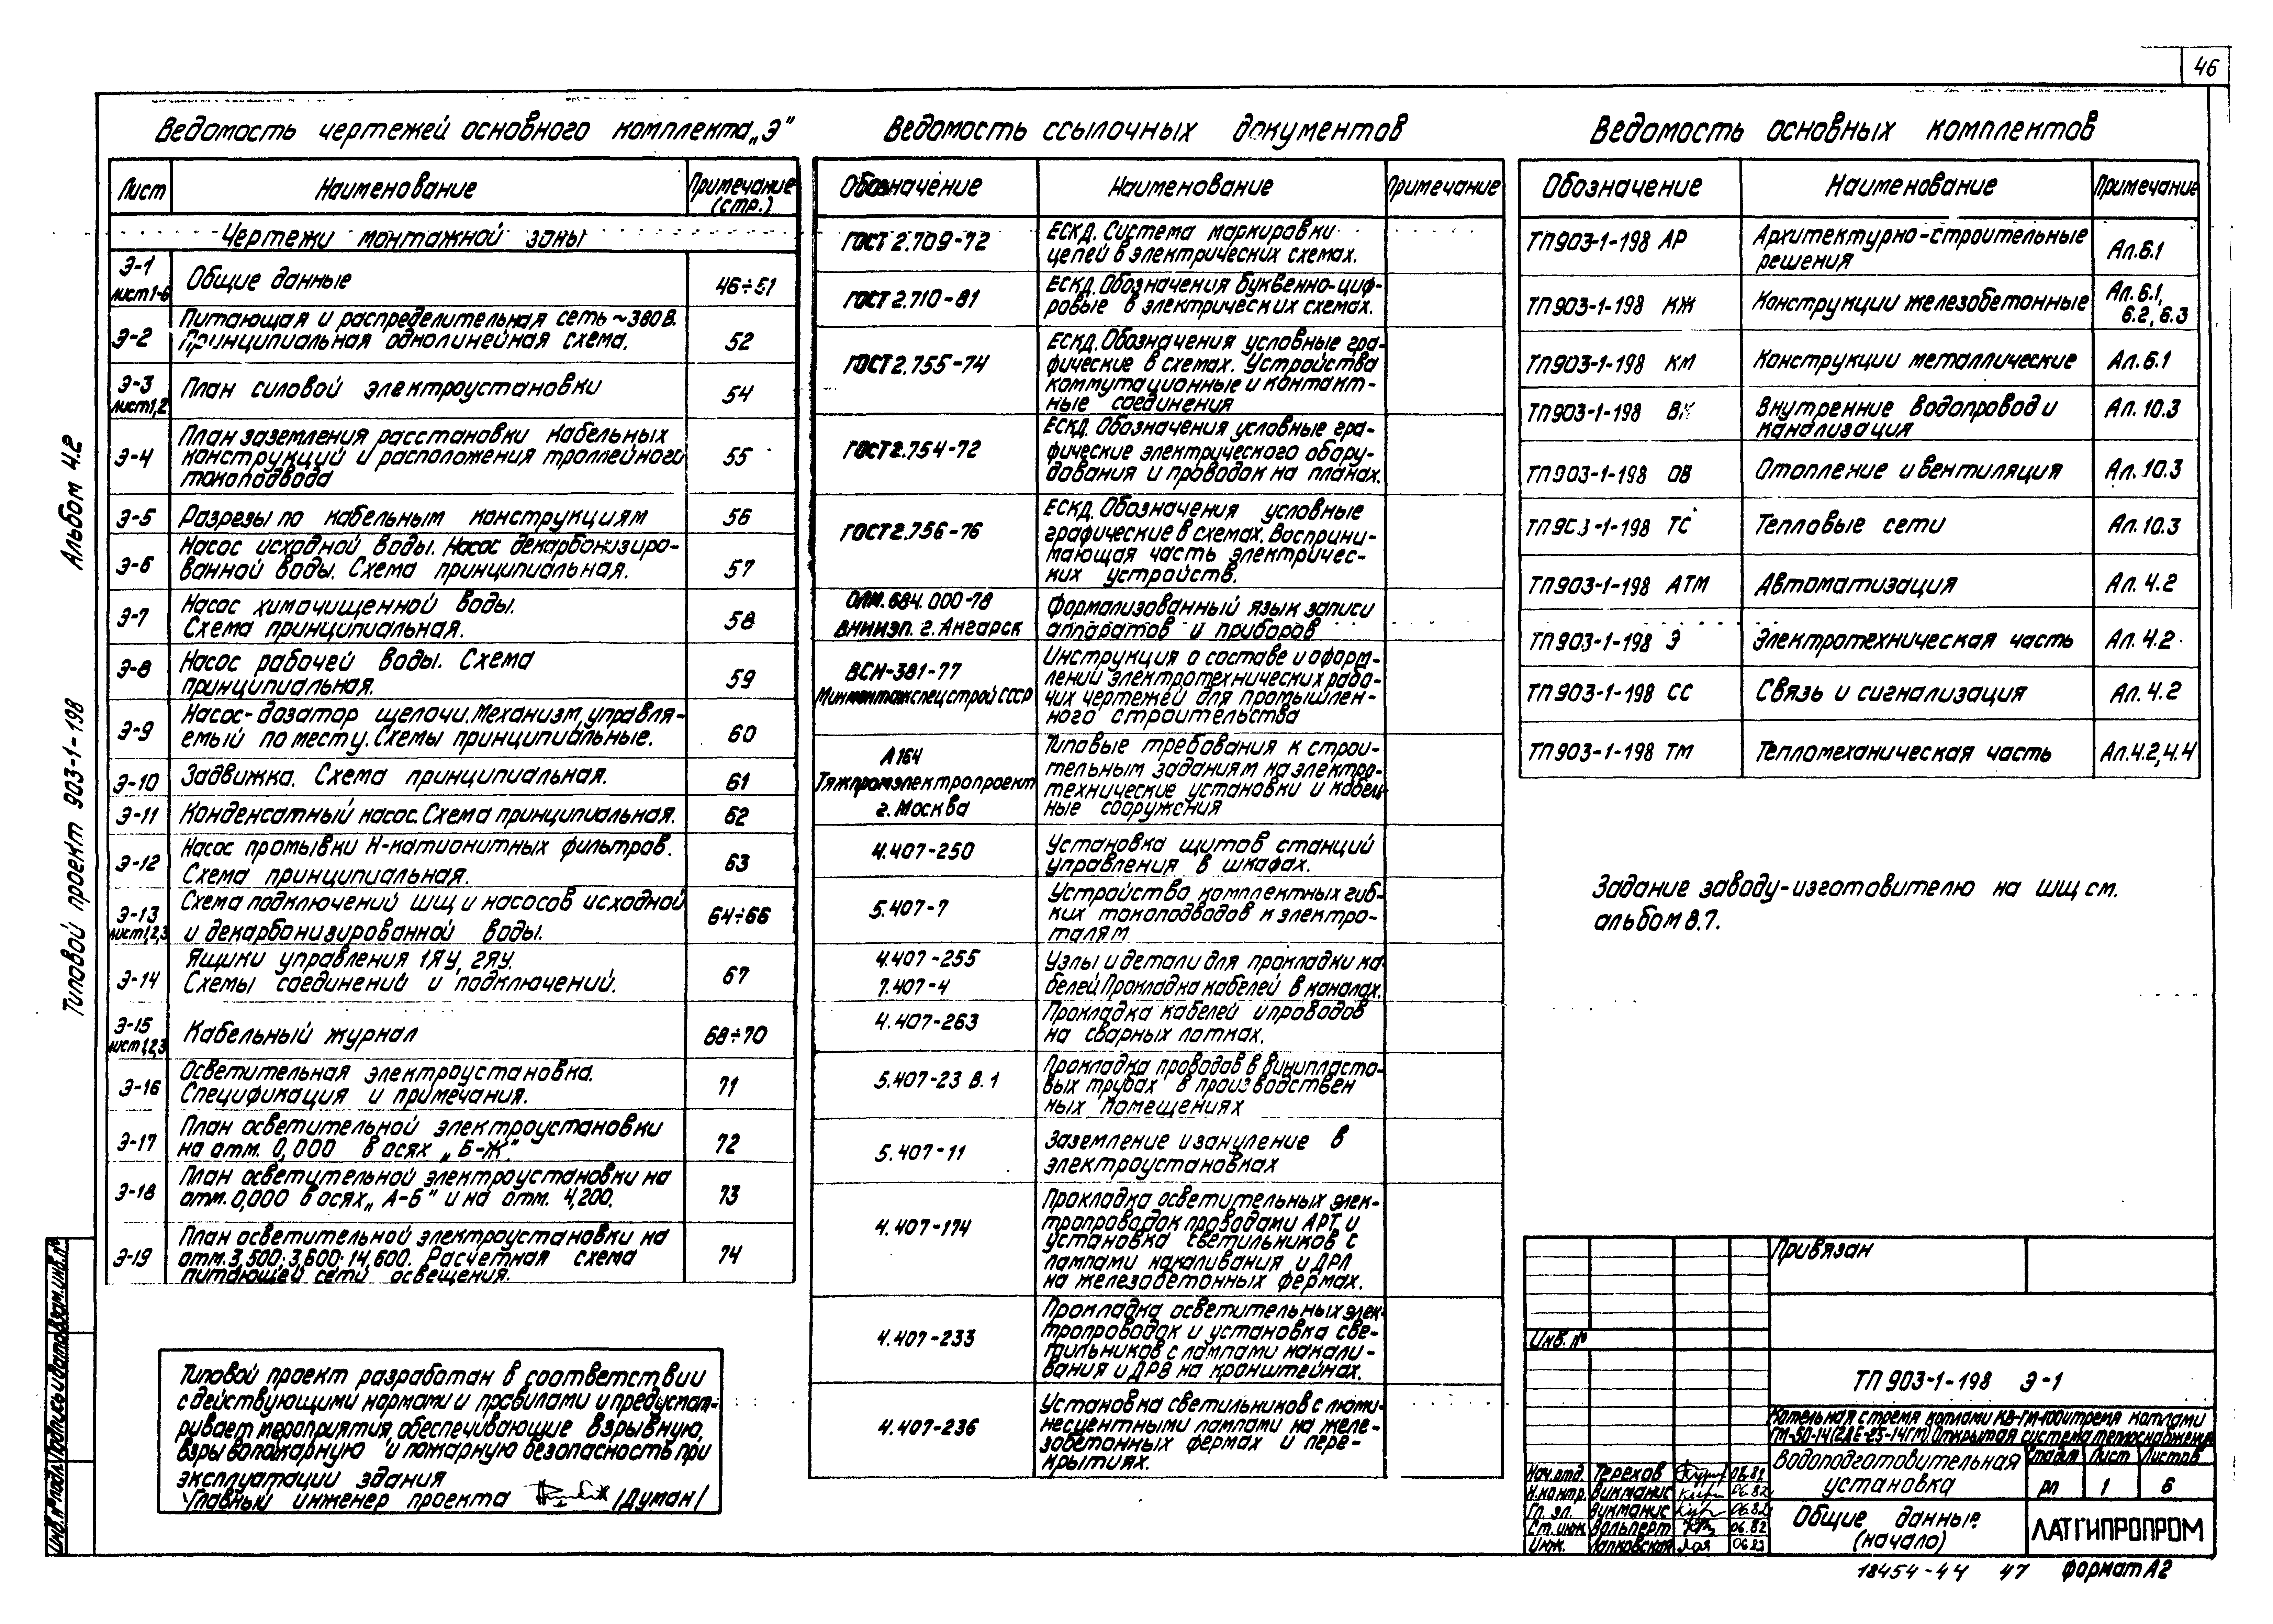 46
Ведомость чертежей основного комплекта „Э"
Лист Наименование Примечание (стр.)
Чертежи монтажной зоны
Э-1 лист 1-6 Общие данные 46÷51
Э-2 Питающая и распределительная сеть ~380 В.
Принципиальная однолинейная схема. 52
Э-3 лист 1,2 План силовой электроустановки 54
Э-4 План заземления расстановки кабельных
конструкций и расположения троллейного
токоподвода 55
Э-5 Разрезы по кабельным конструкциям 56
Э-6 Насос исходной воды. Насос декарбонизиро-
ванной воды. Схема принципиальная. 57
Э-7 Насос химочищенной воды.
Схема принципиальная. 58
Э-8 Насос рабочей воды. Схема
принципиальная. 59
Э-9 Насос-дозатор щелочи. Механизм, управля-
емый по месту. Схемы принципиальные. 60
Э-10 Задвижка. Схема принципиальная. 61
Э-11 Конденсатный насос. Схема принципиальная. 62
Э-12 Насос промывки Н-катионитных фильтров.
Схема принципиальная. 63
Э-13 лист 1,2,3 Схема подключений ШЩ и насосов исходной
и декарбонизированной воды. 64÷66
Э-14 Ящики управления 1ЯУ, 2ЯУ.
Схемы соединений и подключений. 67
Э-15 лист 1,2,3 Кабельный журнал 68÷70
Э-16 Осветительная электроустановка.
Спецификация и примечания. 71
Э-17 План осветительной электроустановки
на отм. 0,000 в осях „Б-Ж" 72
Э-18 План осветительной электроустановки на
отм. 0,000 в осях „А-Б" и на отм. 4,200. 73
Э-19 План осветительной электроустановки на
отм. 3,500; 3,600; 14,600. Расчетная схема
питающей сети освещения. 74
Типовой проект разработан в соответствии
с действующими нормами и правилами и предусмат-
ривает мероприятия, обеспечивающие взрывную,
взрывопожарную и пожарную безопасность при
эксплуатации здания
Главный инженер проекта /Думан/
Ведомость ссылочных документов
Обозначение Наименование Примечание
ГОСТ 2.709-72 ЕСКД. Система маркировки
цепей в электрических схемах.
ГОСТ 2.710-81 ЕСКД. Обозначения буквенно-циф-
ровые в электрических схемах.
ГОСТ 2.755-74 ЕСКД. Обозначения условные гра-
фические в схемах. Устройства
коммутационные и контакт-
ные соединения
ГОСТ 2.754-72 ЕСКД. Обозначения условные гра-
фические электрического обору-
дования и проводок на планах.
ГОСТ 2.756-76 ЕСКД. Обозначения условные
графические в схемах. Восприни-
мающая часть электричес-
ких устройств.
ОЛМ.684.000-78
ВНИИЭП. г. Ангарск Формализованный язык записи
аппаратов и приборов
ВСН-381-77
Минмонтажспецстрой СССР Инструкция о составе и оформ-
лении электротехнических рабо-
чих чертежей для промышлен-
ного строительства
А164
Тяжпромэлектропроект
г. Москва Типовые требования к строи-
тельным заданиям на электро-
технические установки и кабель-
ные сооружения
4.407-250 Установка щитов станций
управления в шкафах.
5.407-7 Устройство комплектных гиб-
ких токоподводов к электро-
талям
4.407-255
7.407-4 Узлы и детали для прокладки ка-
белей. Прокладка кабелей в каналах.
4.407-263 Прокладка кабелей и проводов
на сварных лотках.
5.407-23 В.1 Прокладка проводов в винипласто-
вых трубах в производствен
ных помещениях
5.407-11 Заземление и зануление в
электроустановках
4.407-174 Прокладка осветительных элек-
тропроводок проводами АРТ и
установка светильников с
лампами накаливания и ДРЛ
на железобетонных фермах.
4.407-233 Прокладка осветительных элек-
тропроводок и установка све-
тильников с лампами накали-
вания и ДРВ на кронштейнах.
4.407-236 Установка светильников с люми-
несцентными лампами на желе-
зобетонных фермах и пере-
крытиях.
Ведомость основных комплектов
Обозначение Наименование Примечание
ТП 903-1-198 АР Архитектурно-строительные
решения Ал.6.1
ТП 903-1-198 КЖ Конструкции железобетонные Ал.6.1,
6.2, 6.3
ТП 903-1-198 КМ Конструкции металлические Ал.6.1
ТП 903-1-198 ВК Внутренние водопровод и
канализация Ал. 10.3
ТП 903-1-198 ОВ Отопление и вентиляция Ал. 10.3
ТП 903-1-198 ТС Тепловые сети Ал.10.3
ТП 903-1-198 АТМ Автоматизация Ал. 4.2
ТП 903-1-198 Э Электротехническая часть Ал. 4.2
ТП 903-1-198 СС Связь и сигнализация Ал. 4.2
ТП 903-1-198 ТМ Тепломеханическая часть Ал.4.2, 4.4
Задание заводу-изготовителю на ШЩ см.
альбом 8.7.
Привязан
Инв. №
ТП 903-1-198 Э-1
Котельная с тремя котлами КВ-ГМ-100 и тремя котлами
ГМ-50-14 (2ДЕ-25-14ГМ). Открытая система теплоснабжения
Водоподготовительная
установка
Стадия Лист Листов
рп 1 6
Общие данные
(начало)
ЛАТГИПРОПРОМ
Нач. отд. Терехов 06.82
Н. контр. Викманис 06.82
Гл. эл. Викманис 06.82
Ст. инж. Вольперт 06.82
Инж. Лапковская 06.82
18454-44 47 Формат А2
Альбом 4.2
Типовой проект 903-1-198
Инв. № подл. Подпись и дата Взам. инв. №